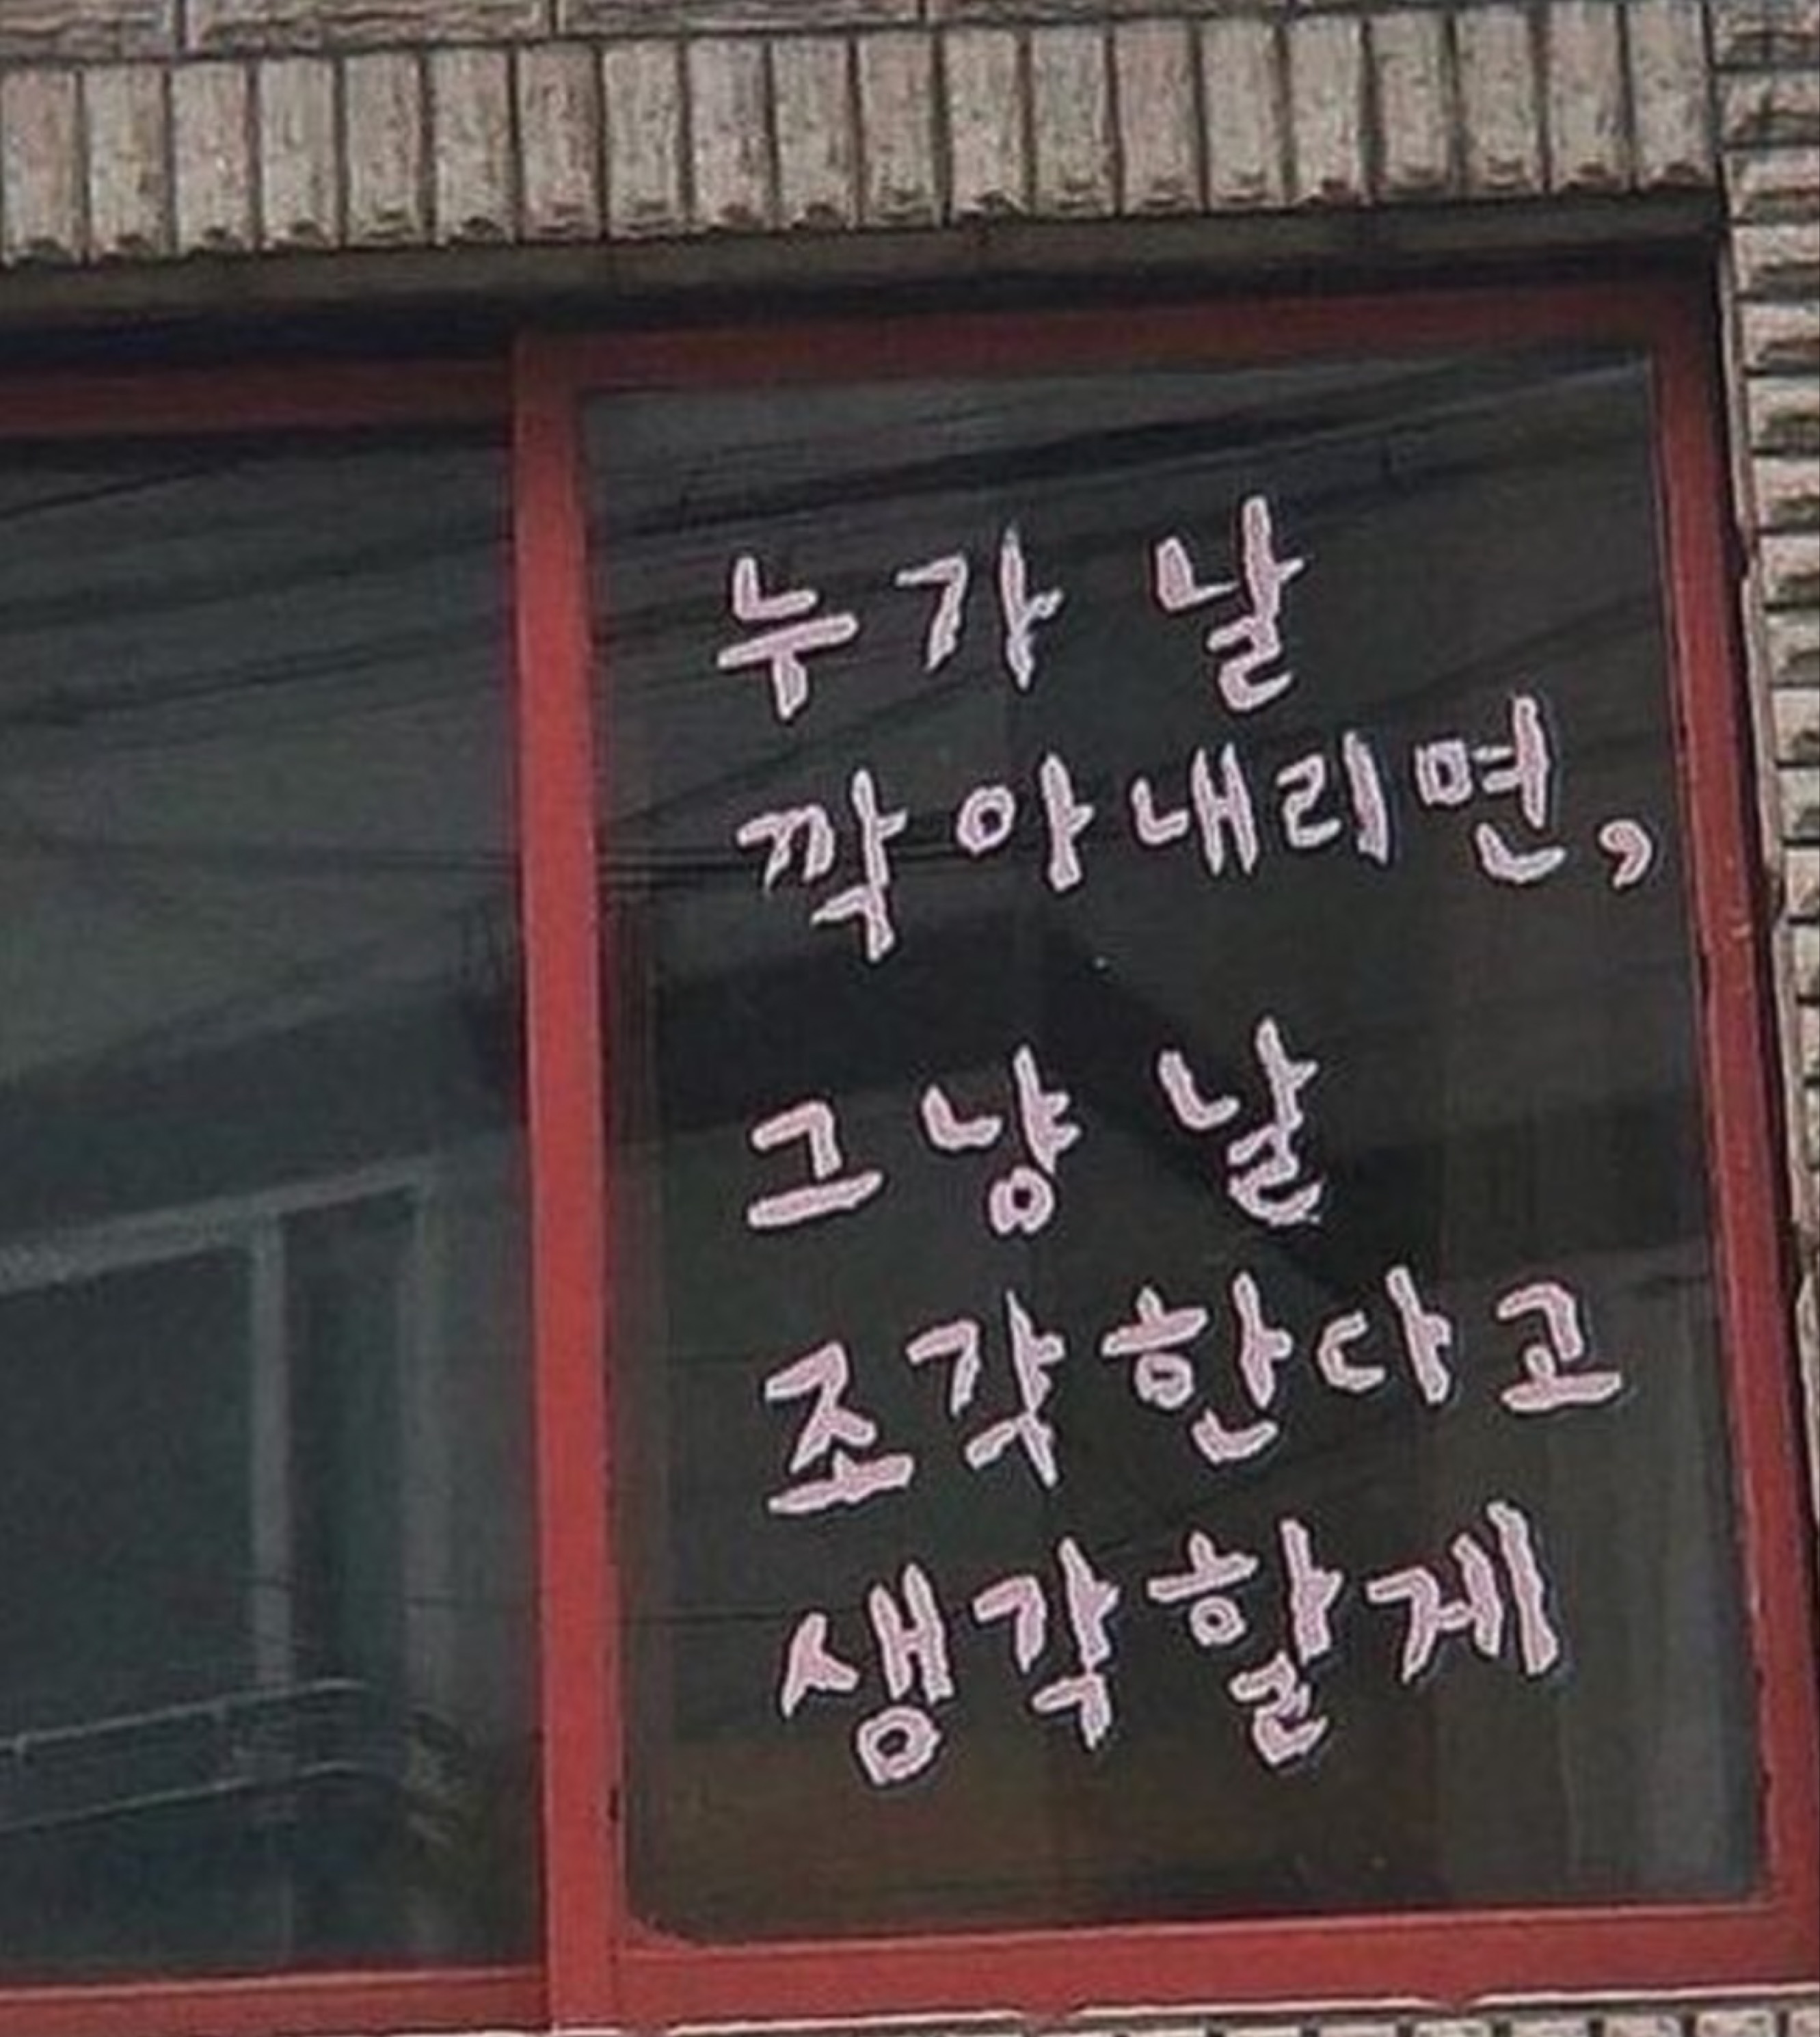 누가 날
깎아내리면,
그냥 날
조각한다고
생각할게